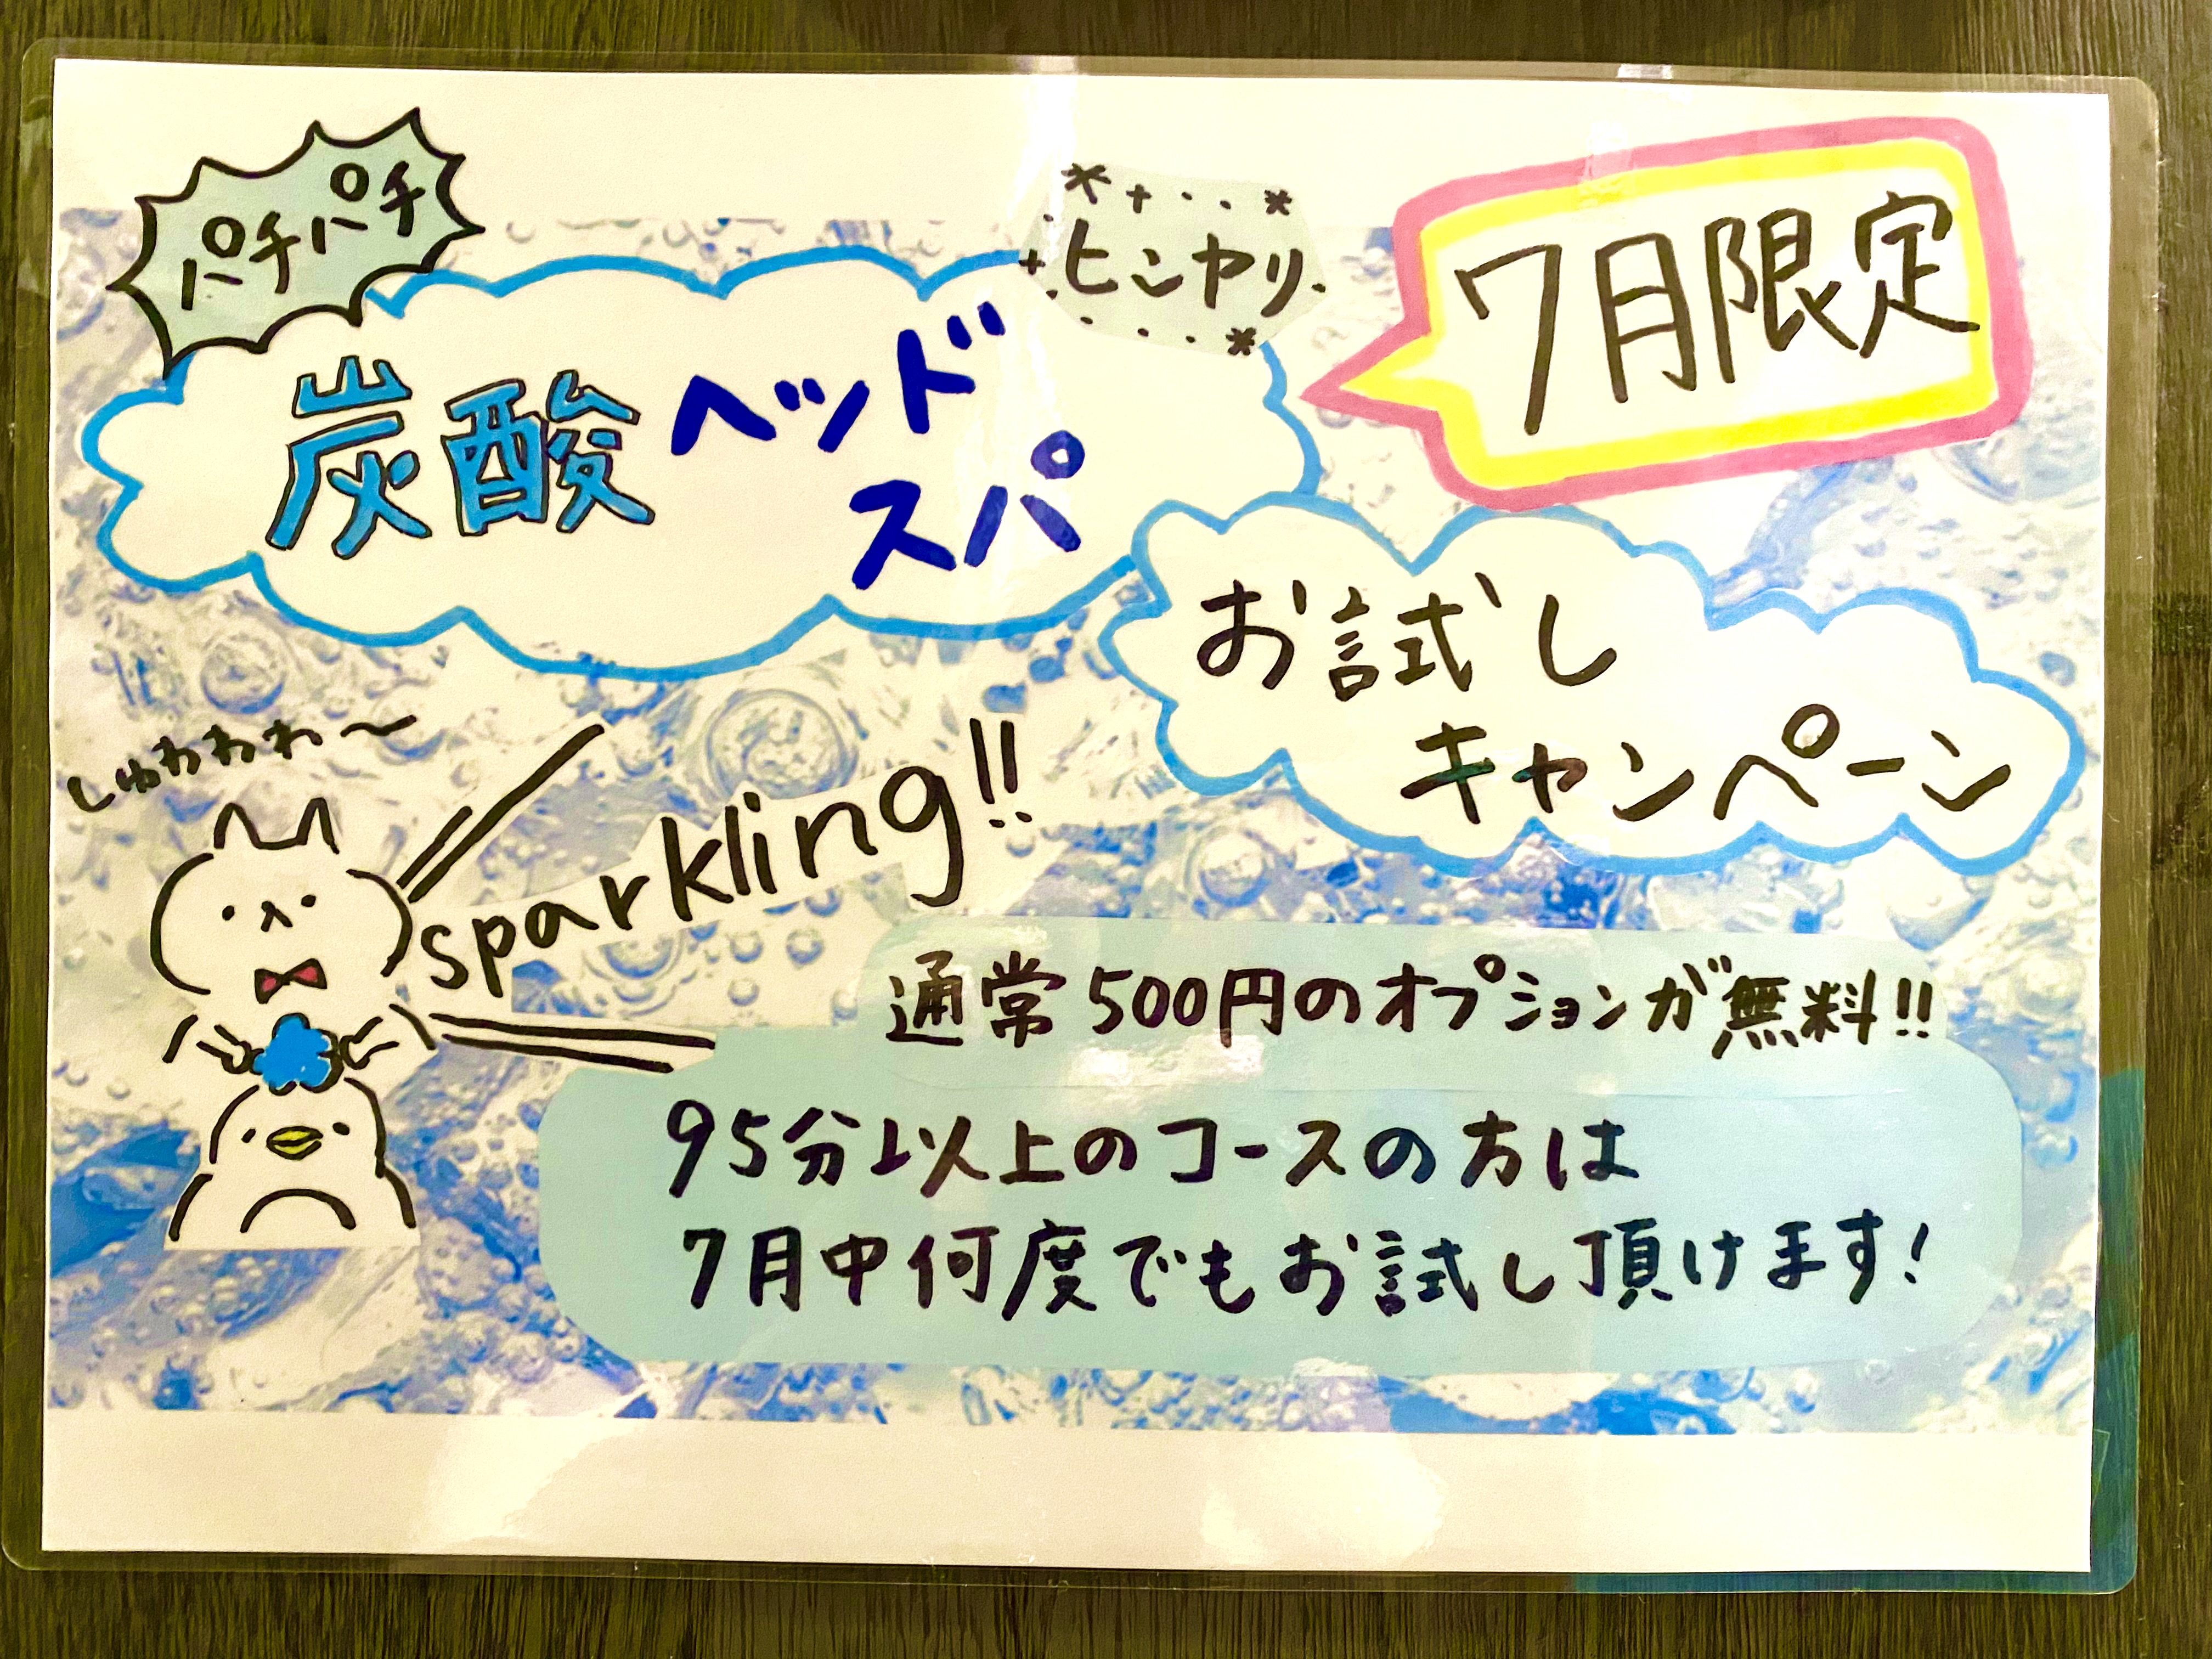 パチパチ
ヒンヤリ
7月限定
炭酸ヘッド
スパ
お試し
キャンペーン
しゅわわわ〜
sparkling!!
通常500円のオプションが無料!!
95分以上のコースの方は
7月中何度でもお試し頂けます!